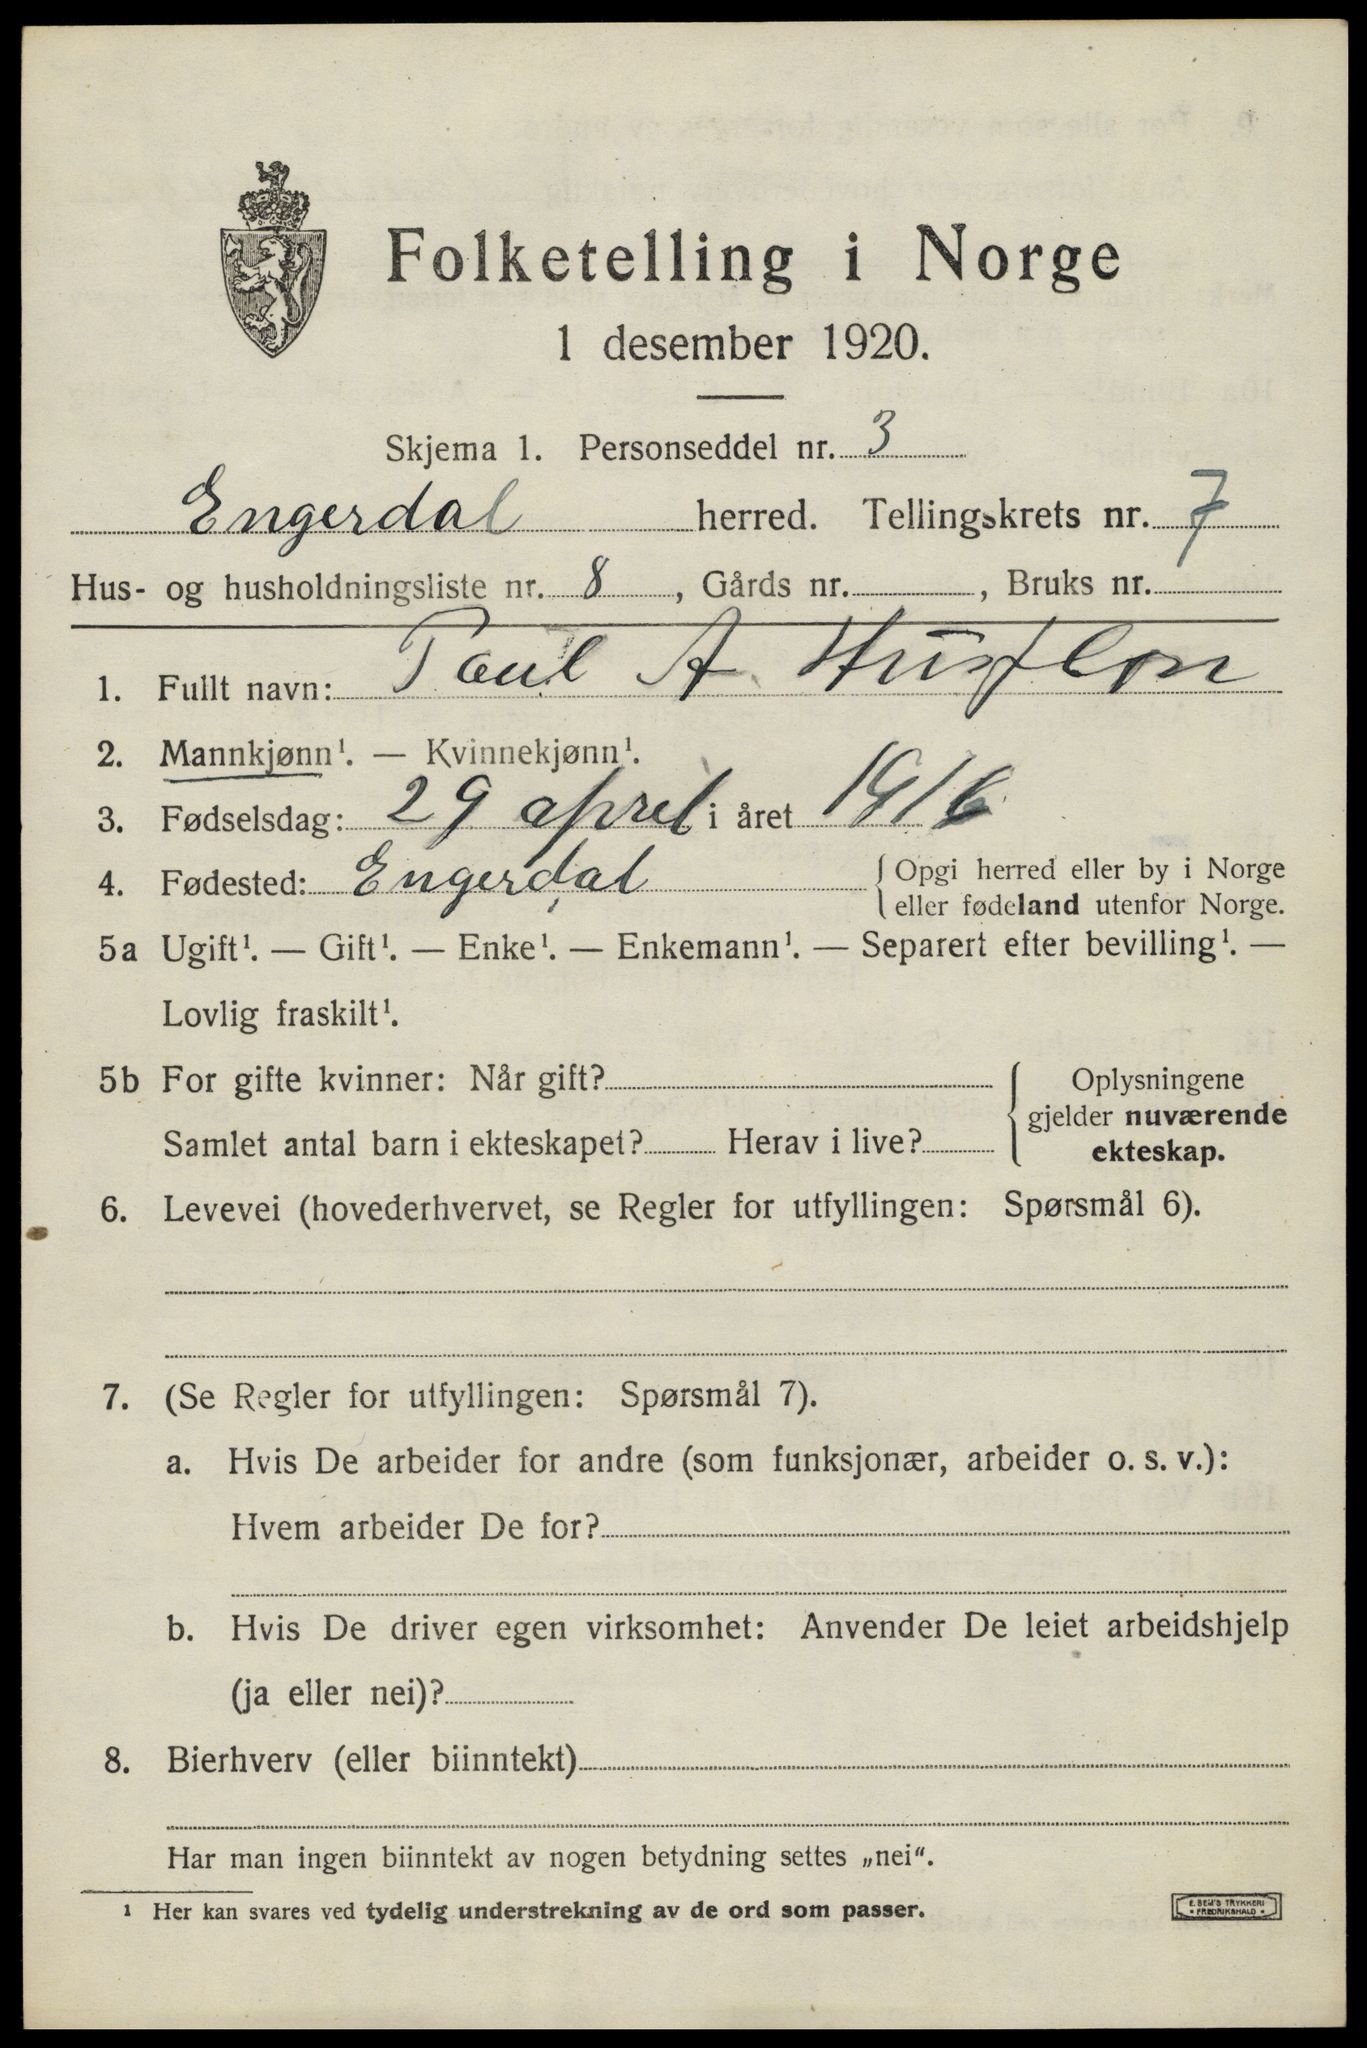 Folketelling i Norge
1 desember 1920.
Skjema 1. Personseddel nr. 3
Engerdal herred. Tellingskrets nr. 7
Hus- og husholdningsliste nr. 8, Gårds nr. , Bruks nr.
1. Fullt navn: Paul A
2. Mannkjønn¹. — Kvinnekjønn¹.
3. Fødselsdag: 29 april i året 1916
4. Fødested: Engerdal { Opgi herred eller by i Norge
eller fødeland utenfor Norge.
5a Ugift¹. — Gift¹. — Enke¹. — Enkemann¹. — Separert efter bevilling¹. —
Lovlig fraskilt¹.
5b For gifte kvinner: Når gift? { Oplysningene
gjelder nuværende
Samlet antal barn i ekteskapet? Herav i live? ekteskap.
6. Levevei (hovederhvervet, se Regler for utfyllingen: Spørsmål 6).
7. (Se Regler for utfyllingen: Spørsmål 7).
a. Hvis De arbeider for andre (som funksjonær, arbeider o. s. v.):
Hvem arbeider De for?
b. Hvis De driver egen virksomhet: Anvender De leiet arbeidshjelp
(ja eller nei)?
8. Bierhverv (eller biinntekt)
Har man ingen biinntekt av nogen betydning settes „nei“.
¹ Her kan svares ved tydelig understrekning av de ord som passer.
E. SEM'S TRYKKERI
• FREDRIKSHALD •